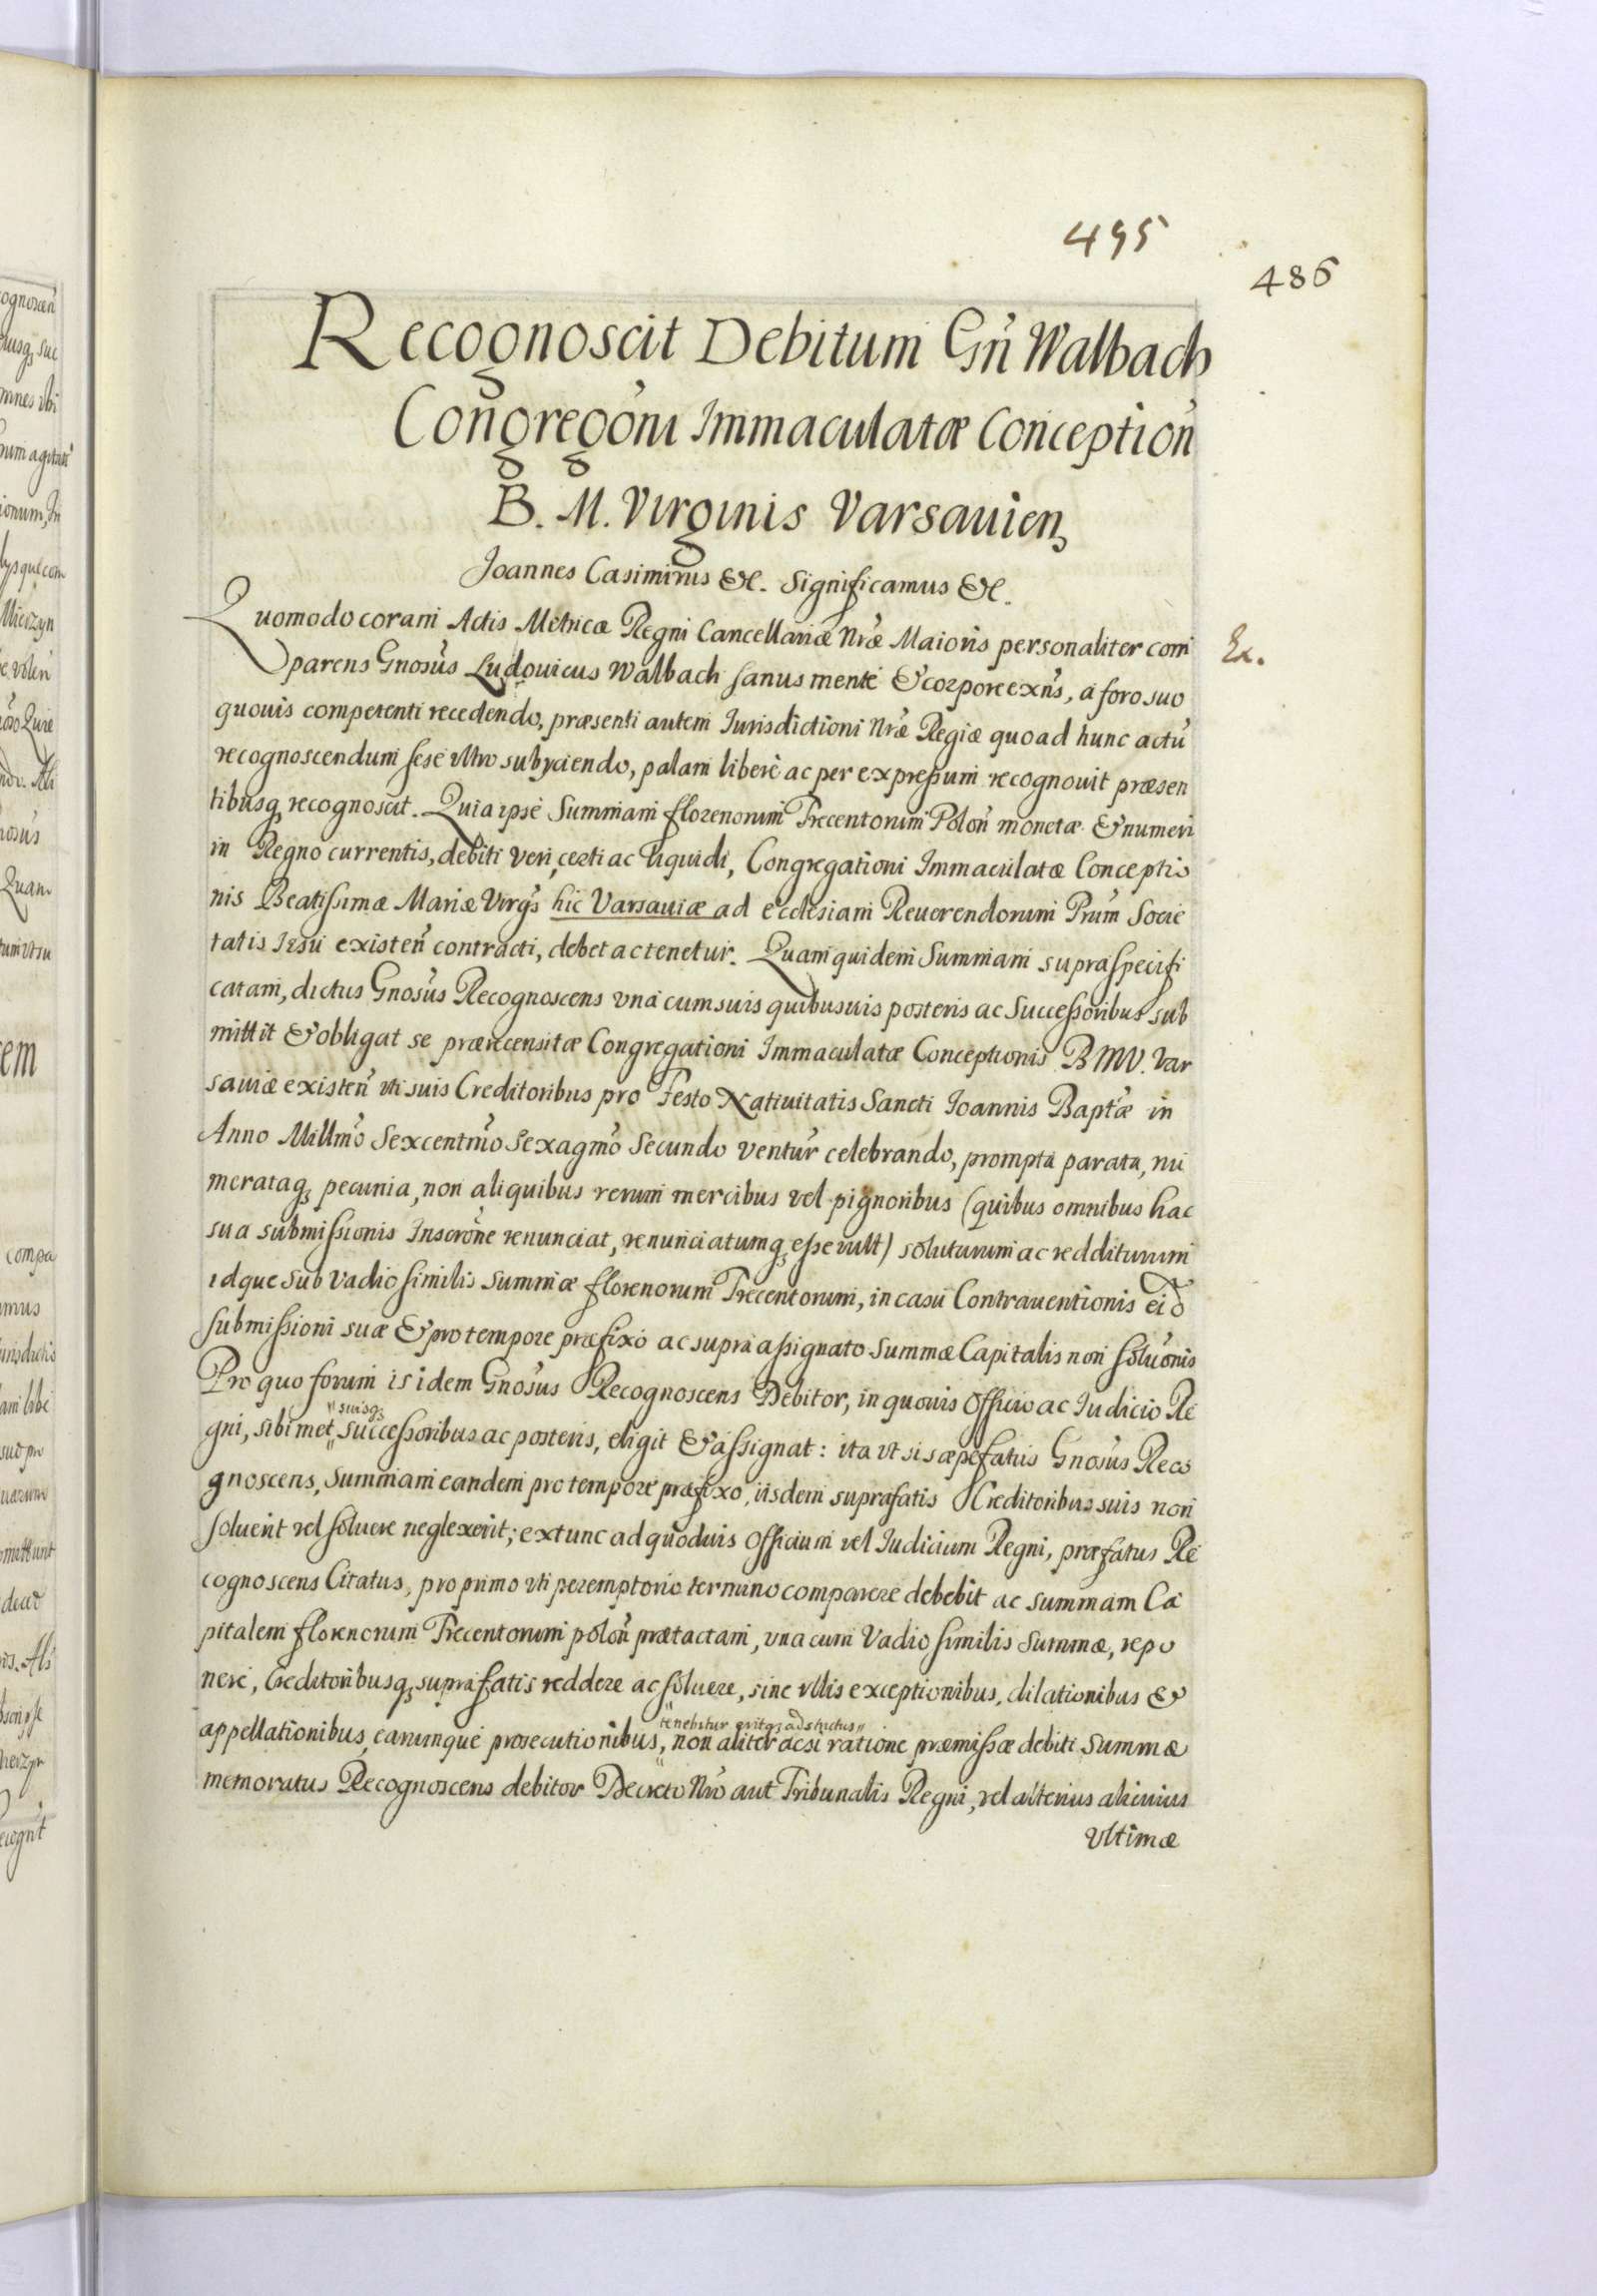 495
486
Recognoscit Debitum Gn̄ Walbach
Congregōni Immaculatæ Conception̄
B. M. Virginis Varsavien̄
Joannes Casimirus &c. Significamus &c.
Quomodo coram Actis Metricæ Regni Cancellariæ Nr̄æ Maioris personaliter com
Ex.
parens Gnosūs Ludouicus Walbach sanus mente & corpore exn̄s, a foro suo
quouis competenti recedendo, præsenti autem Iurisdictioni Nr̄æ Regiæ quoad hunc actū
recognoscendum sese ultro subyciendo, palam liberè ac per expressum recognouit præsen
tibusq; recognoscit. Quia ipse Summam florenorum Trecentorum Polon̄ monetæ & numeri
in Regno currentis, debiti veri, certi ac liquidi, Congregationi Immaculatæ Conceptio
nis Beatissimæ Mariæ Virgs̄ hic Varsauiæ ad ecclesiam Reuerendorum Prūm Socie
tatis Iesu existen̄ contracti, debet ac tenetur. Quam quidem Summam supraspecifi
catam, dictus Gnosūs Recognoscens vna cum suis quibusuis posteris ac Successoribus sub
mittit & obligat se prærecensitæ Congregationi Immaculatæ Conceptionis BMV. Var
sauiæ existen̄ vti suis Creditoribus pro Festo Natiuitatis Sancti Ioannis Bapt̄æ in
Anno Millm̄o Sexcentm̄o Sexagm̄o Secundo ventūr celebrando, prompta parata, nu
merataq; pecunia, non aliquibus rerum mercibus vel pignoribus (quibus omnibus hac
sua submissionis Inscrōne renunciat, renunciatumq; esse vult) soluturum ac redditurum
idque sub vadio similis summæ florenorum Trecentorum, in casu Contrauentionis eid
submissioni suæ & pro tempore præfixo ac supra assignato Summæ Capitalis non solūonis
Pro quo forum is idem Gnosūs Recognoscens Debitor, in quouis Officio ac Iudicio Re
"suisq;
gni, sibimet" successoribus ac posteris, eligit & assignat: ita vt si sæpefatus Gnosūs Reco
gnoscens, Summam eandem pro tempore præfixo, iisdem suprafatis Creditoribus suis non
soluerit vel soluere neglexerit; extunc ad quoduis Officium vel Iudicium Regni, præfatus Re
cognoscens Citatus, pro primo vti peremptorio termino comparere debebit ac summam Ca
pitalem florenorum Trecentorum polon̄ prætactam, vna cum Vadio similis Summæ, repo
nere, Creditoribusq; suprafatis reddere ac soluere, sine vllis exceptionibus, dilationibus &
"tenebitur eritq; adstrictus"
appellationibus, earumque prosecutionibus," non aliter acsi ratione præmissæ debiti Summæ
memoratus Recognoscens debitor Decreto Nr̄o aut Tribunalis Regni, vel alterius alicuius
Vltimæ